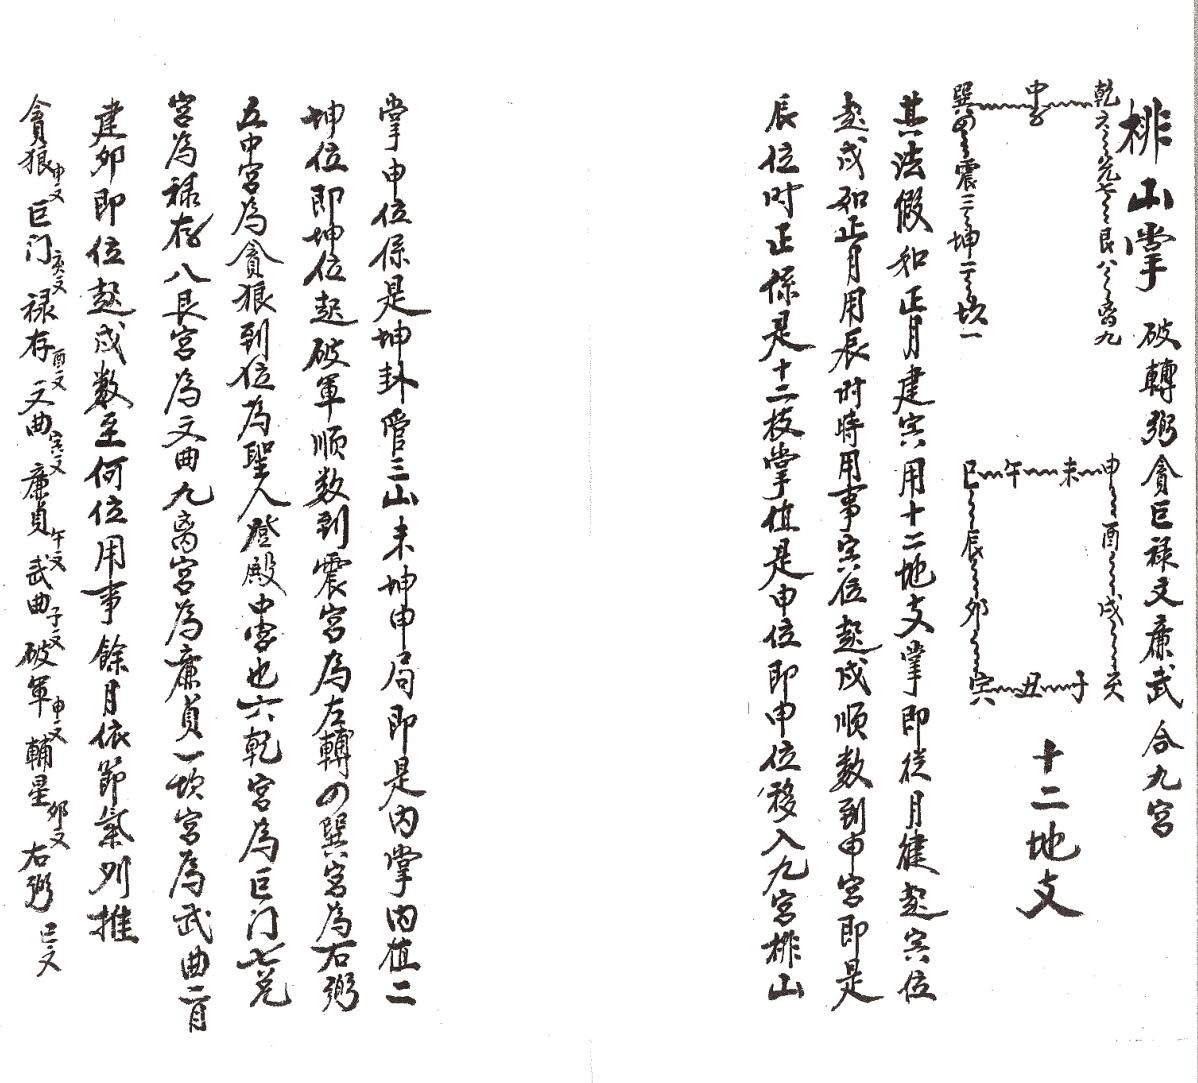 排山掌 破轉弼貪巨禄文廉武 合九宮
乾六 兑七 艮八 离九
中五
巽四 震三 坤二 坎一
申 酉 戌 亥
未
午
巳 辰 卯 寅
丑 子
十二地支
其法假如正月建寅用十二地支掌即從月健起寅位
起戌如正月用辰时時用事寅位起戌順数到申宮即是
辰位时正係是十二枝掌值是申位即申位移入九宮排山
掌申位係是坤卦管三山未坤申局即是内掌内值二
坤位即坤位起破軍顺数到震宮為左轉四巽宮為右弼
五中宮為貪狼到位為聖人登殿中宮也六乾宮為巨门七兑
宮為禄存八艮宮為文曲九离宮為廉貞一坎宮為武曲二月
建卯即位起戌数至何位用事餘月依節氣列推
貪狼申文 巨门亥文 禄存酉文 文曲寅文 廉貞午文 武曲子文 破軍申文 輔星卯文 右弼 巳文